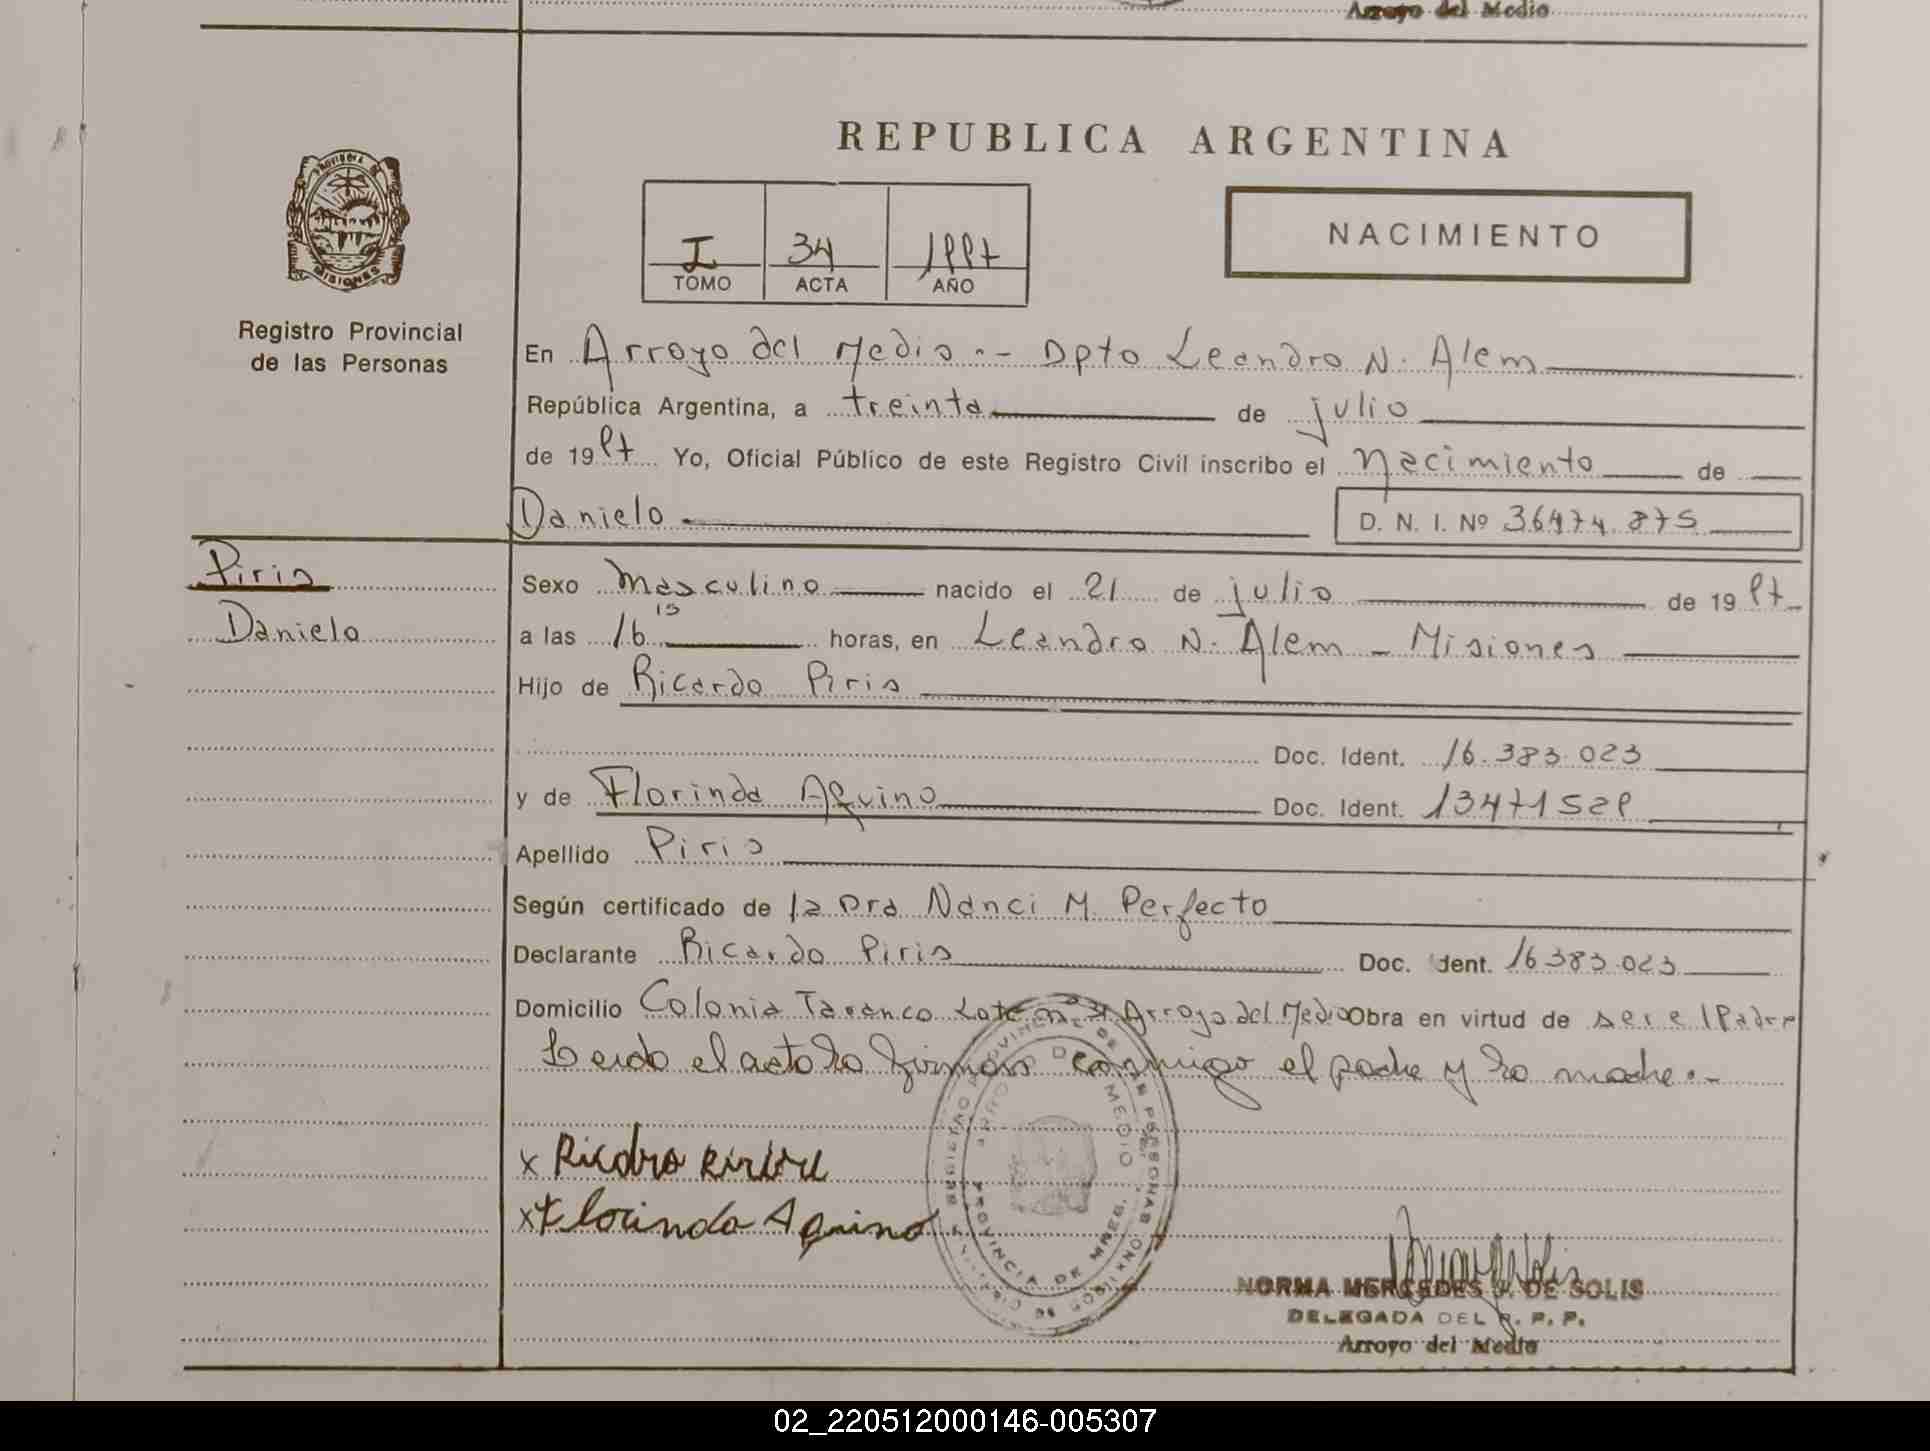 Arroyo del Medio
REPUBLICA ARGENTINA
NACIMIENTO
I 34 1997
TOMO ACTA AÑO
PROVINCIA DE
MISIONES
Registro Provincial
de las Personas
En Arroyo del Medio.- Dpto Leandro N. Alem
República Argentina, a treinta de julio
de 1997 Yo, Oficial Público de este Registro Civil inscribo el nacimiento de
Danielo D. N. I. Nº 36474.875
Piris
Danielo
Sexo Masculino nacido el 21 de julio de 1997
a las 16 15 horas, en Leandro N. Alem - Misiones
Hijo de Ricardo Piris
Doc. Ident. 16.383.023
y de Florinda Aquino Doc. Ident. 13471529
Apellido Piris
Según certificado de la Dra Nanci M. Perfecto
Declarante Ricardo Piris Doc. Ident. 16383.023
Domicilio Colonia Taranco Lote nº Arroyo del Medio Obra en virtud de ser el Padre
Leido el acta la firman conmigo el padre y la madre.-
x Ricardo
x Florinda Aquino
ARROYO DEL MEDIO
PROVINCIA DE MNES.
NORMA MERCEDES DE SOLIS
DELEGADA DEL R. P. P.
Arroyo del Medio
02_220512000146-005307